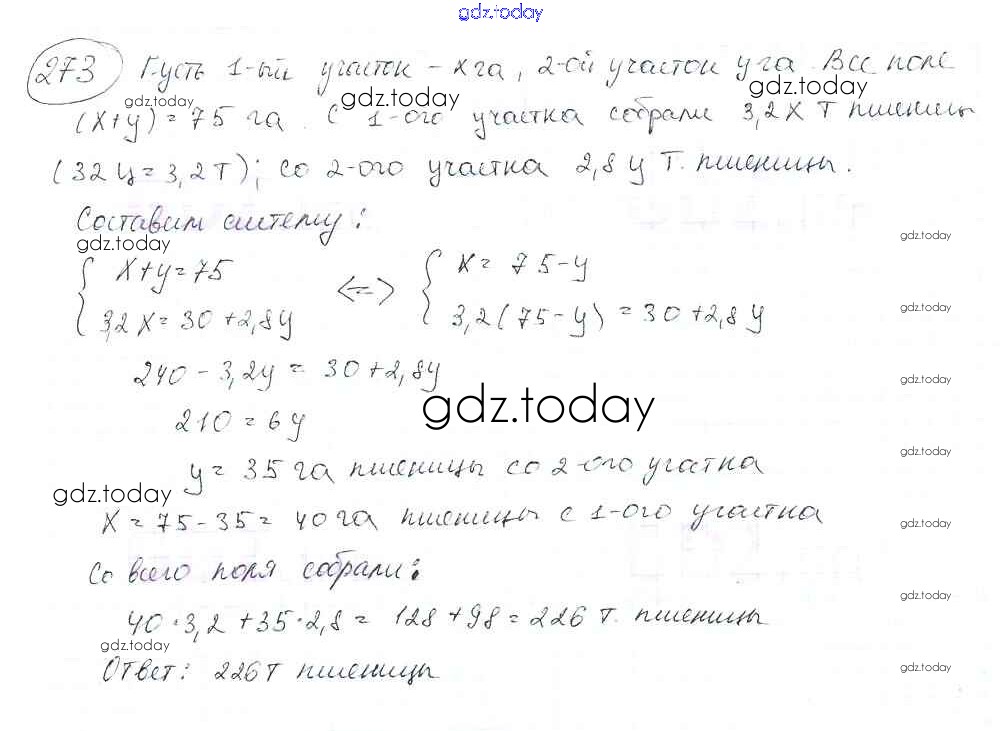 gdz.today
273 Пусть 1-ый участок – x га, 2-ой участок y га. Все поле
gdz.today gdz.today gdz.today
(x+y) = 75 га. С 1-ого участка собрали 3,2x т пшеницы
(32 ц = 3,2 т); со 2-ого участка 2,8 y т. пшеницы.
Составим систему:
gdz.today gdz.today
{ x+y=75 <=> { x = 75-y
{ 3,2x = 30+2,8y { 3,2(75-y) = 30+2,8y
gdz.today
240 - 3,2y = 30+2,8y
gdz.today
gdz.today
210 = 6y
gdz.today
y = 35 га пшеницы со 2-ого участка
gdz.today
x = 75-35 = 40 га пшеницы с 1-ого участка
gdz.today
Со всего поля собрали:
gdz.today
40·3,2+35·2,8 = 128+98 = 226 т. пшеницы
gdz.today
Ответ: 226 т пшеницы
gdz.today